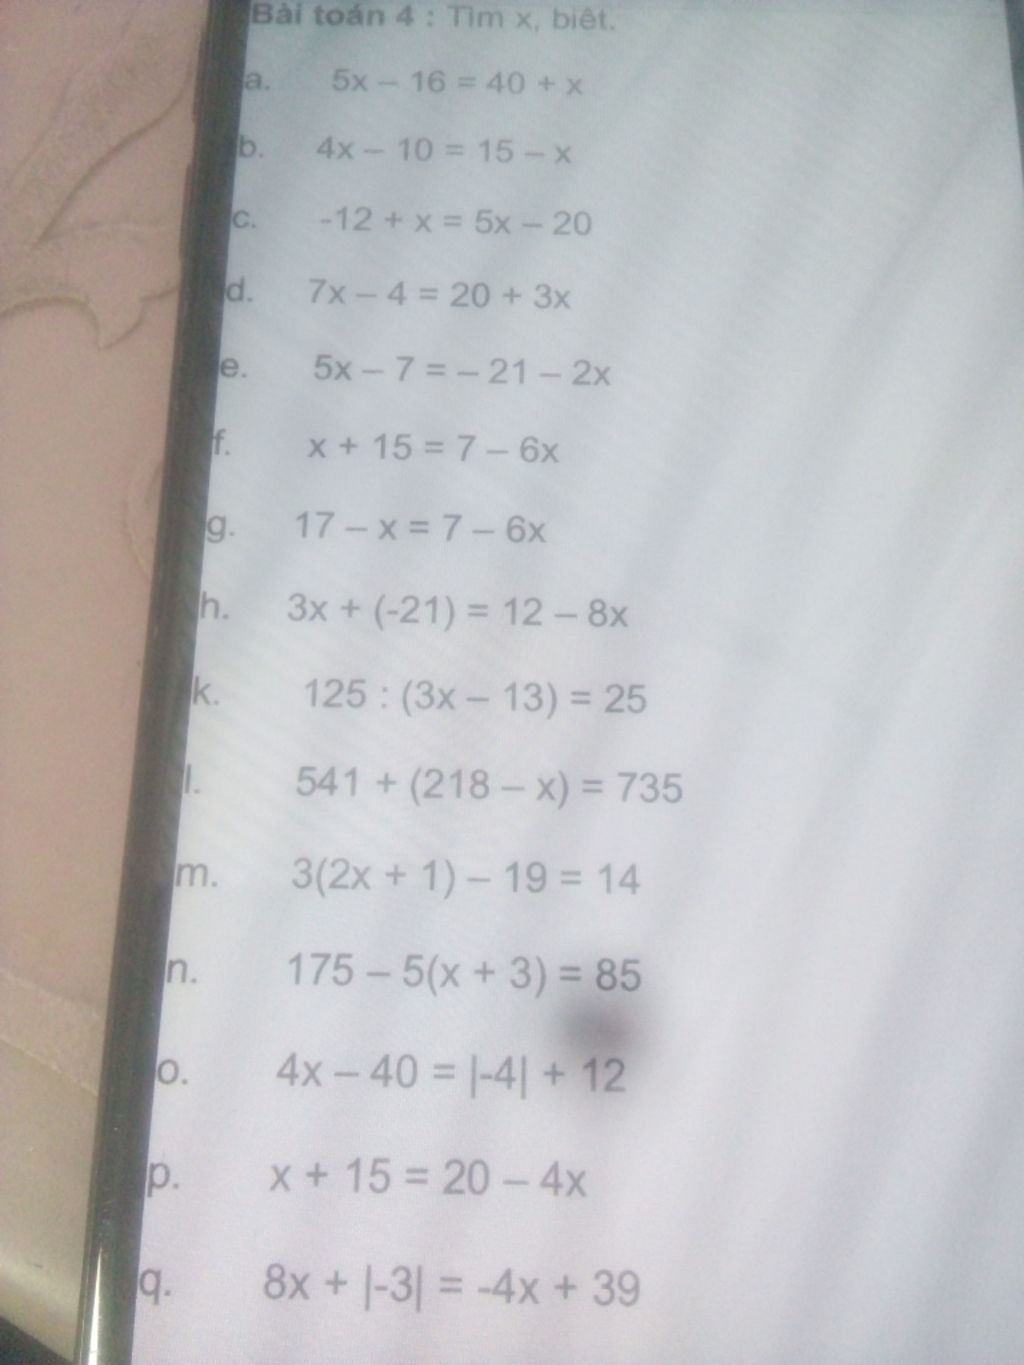 Bài toán 4 : Tìm x, biết.
a. 5x – 16 = 40 + x
b. 4x – 10 = 15 – x
c. -12 + x = 5x – 20
d. 7x – 4 = 20 + 3x
e. 5x – 7 = – 21 – 2x
f. x + 15 = 7 – 6x
g. 17 – x = 7 – 6x
h. 3x + (-21) = 12 – 8x
k. 125 : (3x – 13) = 25
l. 541 + (218 – x) = 735
m. 3(2x + 1) – 19 = 14
n. 175 – 5(x + 3) = 85
o. 4x – 40 = |-4| + 12
p. x + 15 = 20 – 4x
q. 8x + |-3| = -4x + 39